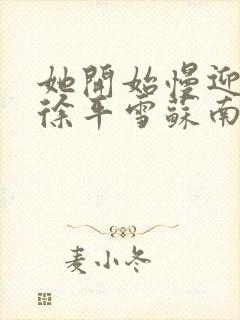 她開始慢迎
徐平雪蘇南
麦小冬